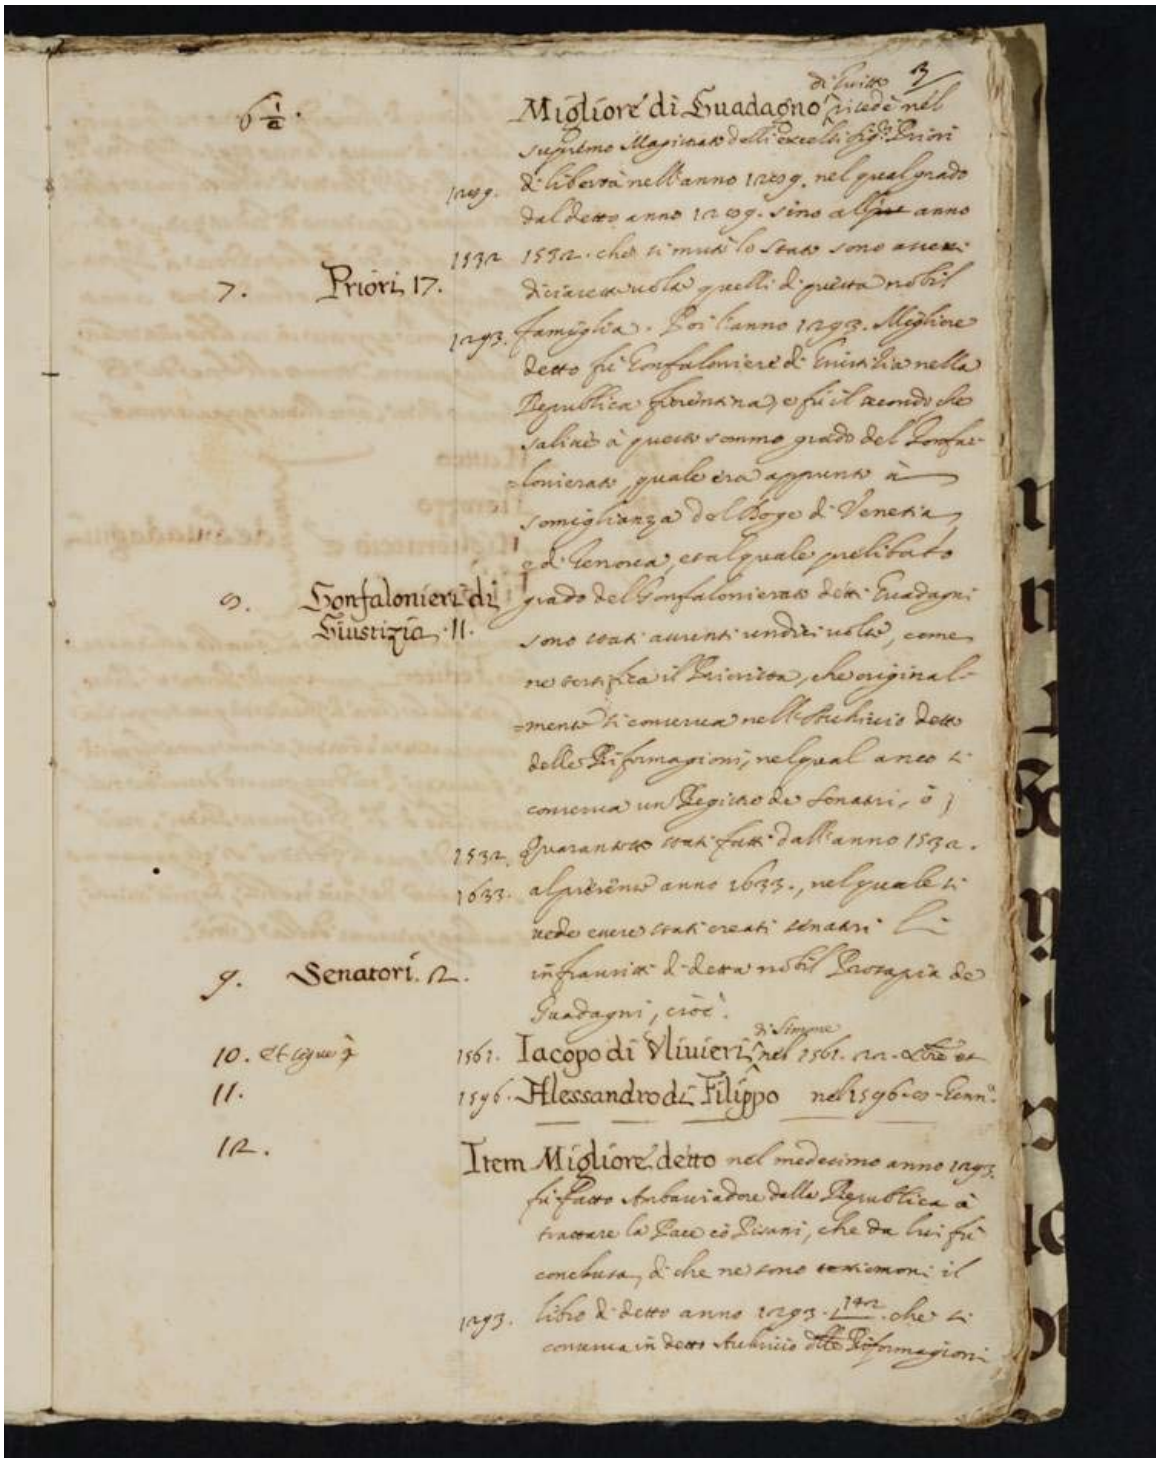 3
di Guitto
6 1/2.
Migliore di Guadagno risedè nel
supremo Magistrato delli excelsi Sig.ri Priori
1289. di libertà nell'anno 1289. nel qual grado
dal detto anno 1289. sino all' anno
1532 1532. che si mutò lo stato sono
7. Priori 17. diciasette volte quelli di questa nobil
1293. famiglia. Poi l'anno 1293. Migliore
detto fù Gonfaloniere di Giustitia nella
Republica fiorentina, e fù il secondo che
salisse à questo sommo grado del Gonfa-
=lonierato, quale era appunto à
somiglianza del Doge di Venetia,
e di Genova, et al quale prelibato
8. Gonfalonieri di grado del Gonfalonierato detti Guadagni
Giustizia. 11. sono stati assunti undici volte, come
ne certifica il Priorista, che original-
=mente si conserva nell'Archivio detto
delle Riformagioni, nel qual anco si
conserva un Registro de Senatori, ò
1532. Quarantotto stati fatti dall'anno 1532.
1633. al presente anno 1633., nel quale si
vede essere stati creati senatori li
9. Senatori. 2. infrascritti di detta nobil Prosapia de
Guadagni, cioè.
di Simone
10. et segue 1561. Iacopo di Vlivieri, nel 1561. 22.
11. 1596. Alessandro di Filippo nel 1596. 8 Genn.o
12. Item Migliore detto nel medesimo anno 1293.
fù fatto Ambasciadore dalla Republica à
trattare la Pace cò Pisani, che da lui fù
conclusa, di che ne sono testimoni il
1293. libro di detto anno 1293. 142. che si
conserva in detto Archivio delle Riformagioni